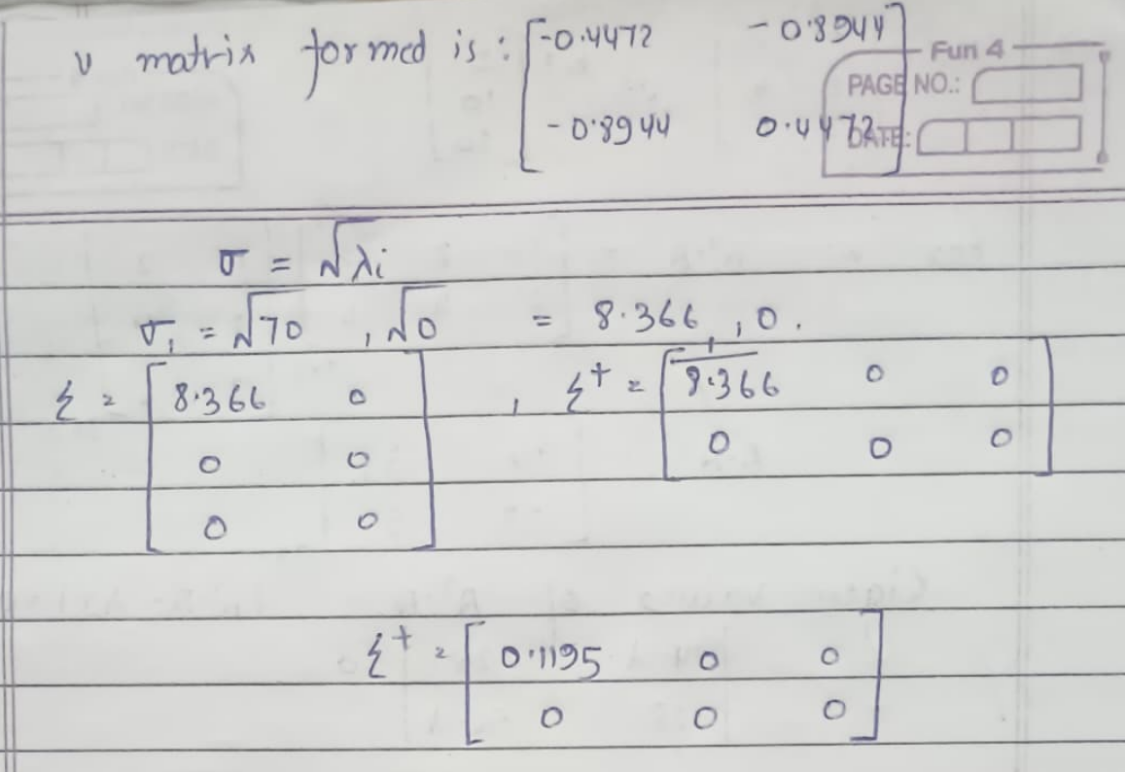 v matrix formed is : [ -0.4472 -0.8944
-0.8944 0.4472 ]
Fun 4
PAGE NO.:
DATE:
σ = √λi
σ₁ = √70 , √0 = 8.366 , 0 .
Σ = [ 8.366 0
0 0
0 0 ]
, Σ⁺ = [ 1/8.366 0 0
0 0 0 ]
Σ⁺ = [ 0.1195 0 0
0 0 0 ]